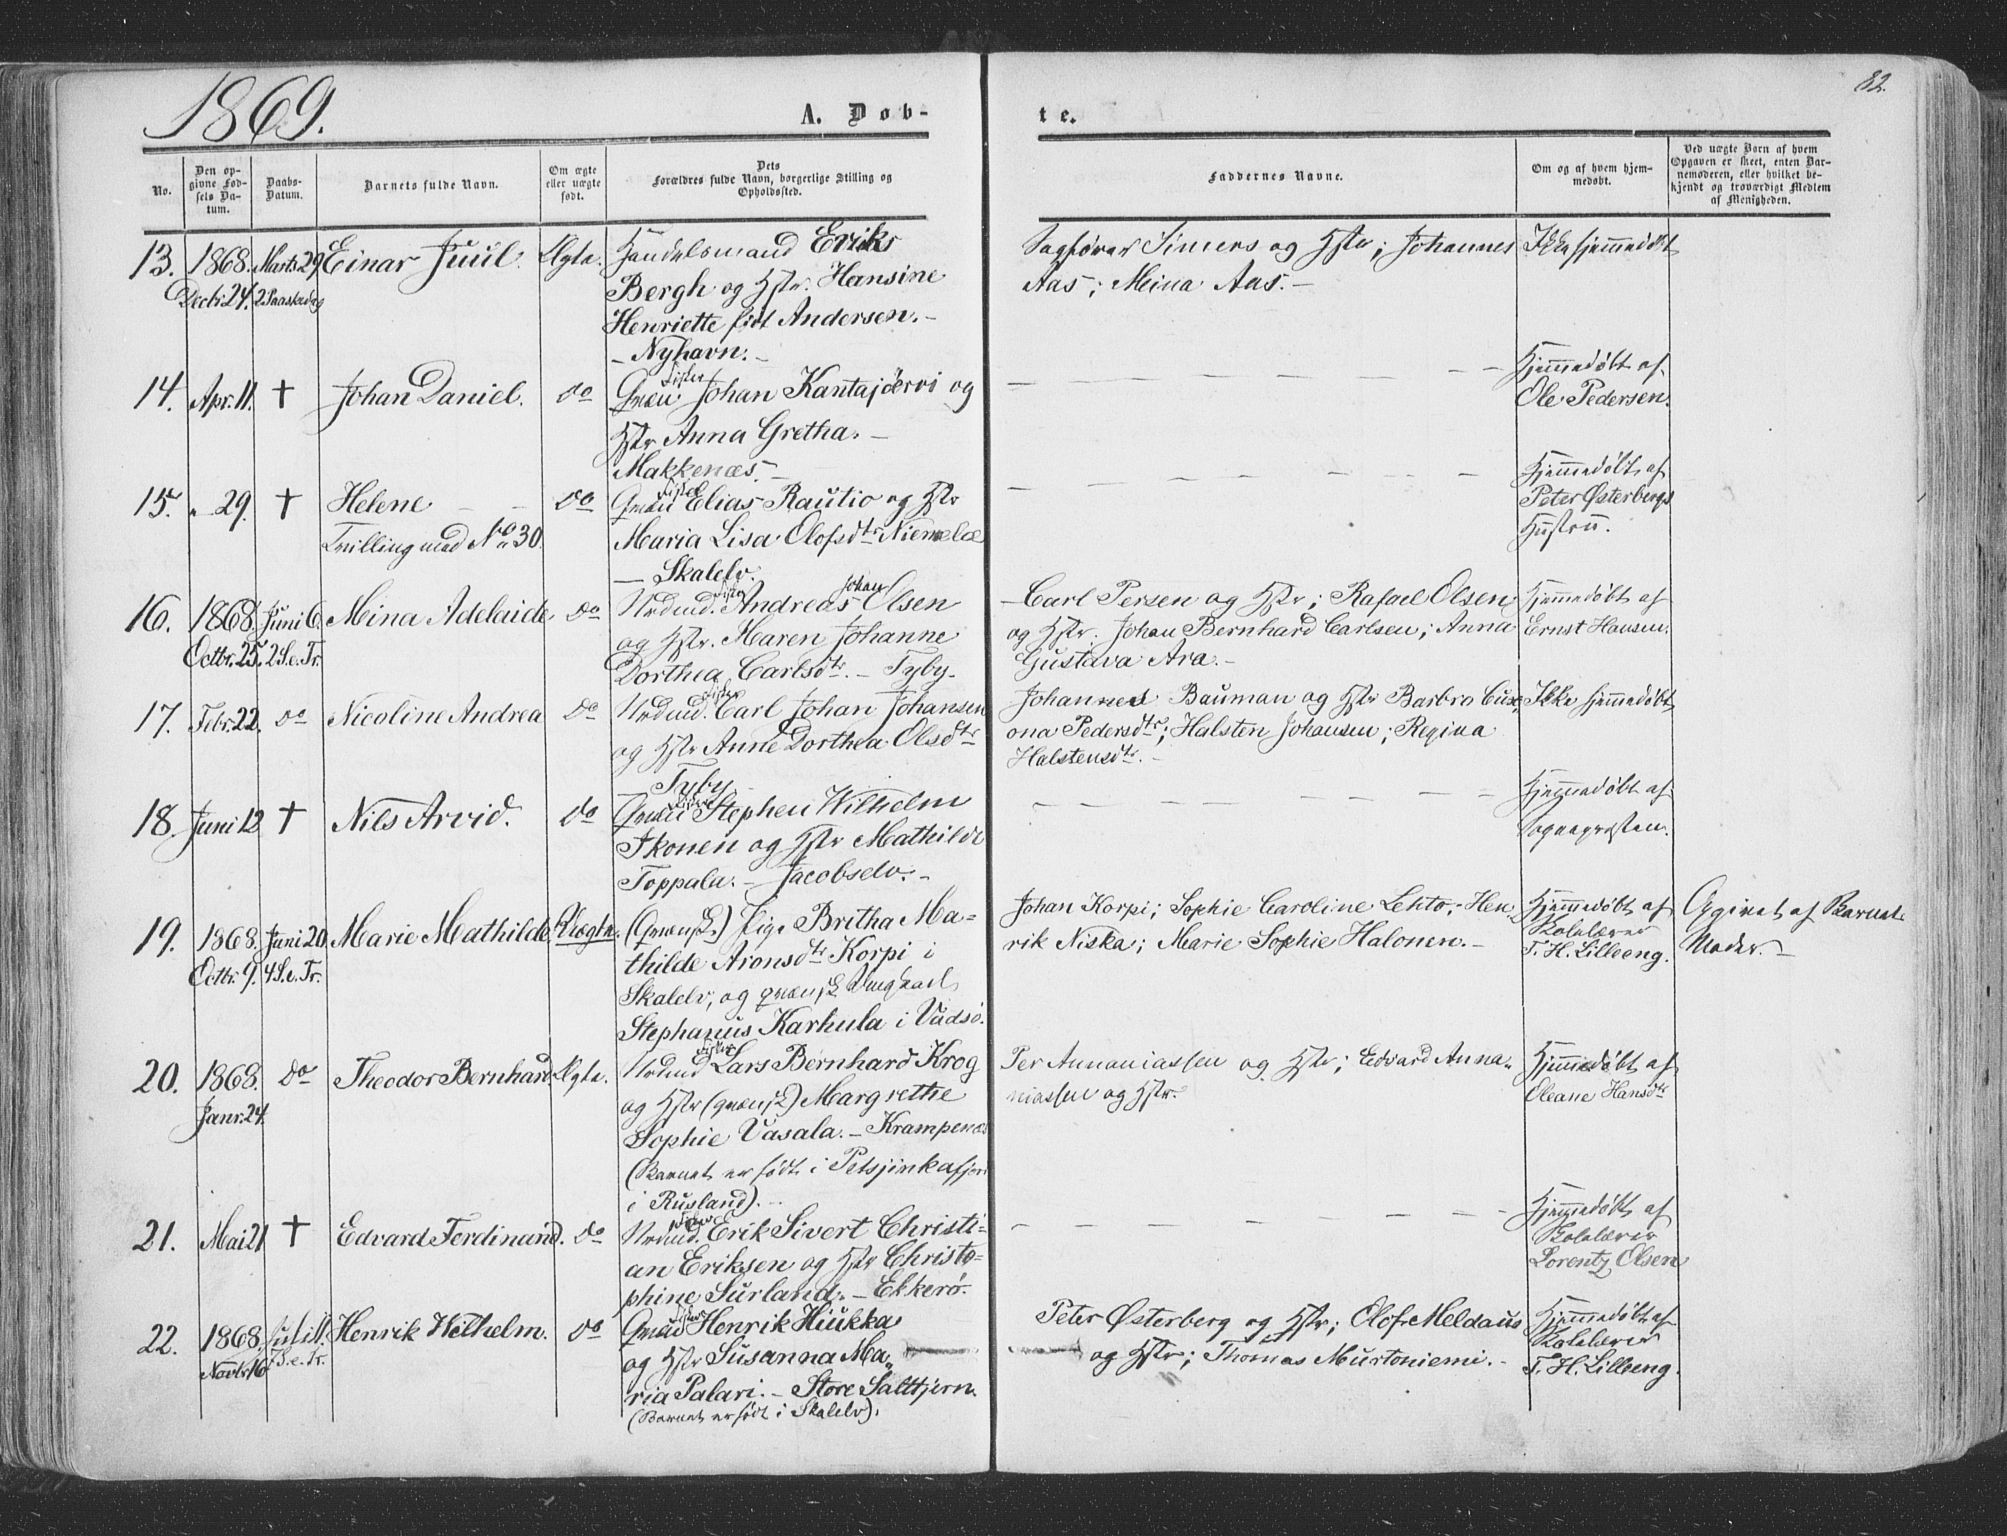 1869.
82.
A. Døb-
te.
No.
Den op-
givne Fød-
sels Da-
tum.
Daabs-
Datum.
Barnets fulde Navn.
Om ægte
eller uægte
født.
Dets
Forældres fulde Navn, borgerlige Stilling og
Opholdssted.
Faddernes Navne.
Om og af hvem hjem-
medøbt.
Ved uægte Barn af hvem
Opgaven er skeet, enten Bar-
nemoderen, eller hvilket be-
kjendt og troværdigt Medlem
af Menigheden.
13. 1868. Marts 29. Einar Juul. Ægte. Handelsmand Eriks
Decbr. 24. 2 Paaskedag Bergh og Hstr. Hansine
Henriette født Andersen.-
- Nyhavn.-
Sagfører Simers og Hstr; Johannes
Aas; Meina Aas.-
Ikke hjemmedøbt
14. Apr. 11. † Johan Daniel. do
Fisker
Qvæn. Johan Kantajðervi og
Hstr Anna Gretha. -
Makkenæs.-
Hjemmedøbt af
Ole Pedersen.
15. " 29. † Helene - - do
Tvilling med No 30.
Fisker
Qvæn Elias Rautio og Hstr
Maria Lisa Olofsdtr Niemelæ
- Skalelv.
Hjemmedøbt af
Peter Østerbergs
Hustru.
16. 1868. Juni 6. Mina Adelaide do
Octbr. 25. 2 S. e. Tr.
Fisker Johan
Nrdmd. Andreas Olsen
og Hstr. Maren Johanne
Dorthea Carlsdtr. - Tyby-
-Carl Persen og Hstr; Rafael Olsen
og Hstr. Johan Bernhard Carlsen; Anna
Gustava Ara.-
Hjemmedøbt af
Ernst Hansen.
17. Febr. 22. do Nicoline Andrea do
Fisker
Nrdmd. Carl Johan Johansen
og Hstr Anne Dorthea Olsdtr
- Tyby -
Johannes Bauman og Hstr Barbro
ona Pedersdtr; Halsten Johansen; Regina
Halstensdtr. -
Ikke hjemmedøbt
18. Juni 12 † Nils Arvid. do
Fisker
Qvæn Stephen Wilhelm
Ikonen og Hstr Mathilde
Toppala. - Jacobselv.-
Hjemmedøbt af
Sognepresten.
19. 1868. Juni 20. Marie Mathilde Uægte.
Octbr. 9. 4 S. e. Tr.
(Qvænsk) Pige Britha Ma-
thilde Aronsdtr Korpi i
Skalelv, og qvænsk Ungkarl
Stephanus Karhula i Vadsø.
Johan Korpi; Sophie Caroline Lehto; Hen-
rik Niska; Marie Sophie Halonen.-
Hjemmedøbt af
Skolelærer
T. H. Lilleeng.
Opgivet af Barnets
Moder.-
20. 1868. do Theodor Bernhard. Ægte.
Janr. 24.
Fisker
Nrdmd Lars Bernhard Krog
og Hstr (qvænsk) Margrethe
Sophie Vasala. - Krampenæs
(Barnet er født i Petsjinkafjor
i Rusland).-
Per Annaniassen og Hstr; Edvard Anna-
niassen og Hstr.
Hjemmedøbt af
Oleane Hansdtr
21. Mai 21 † Edvard Ferdinand. do
Fisker
Nrdmd. Erik Sivert Christi-
an Eriksen og Hstr Christo-
phine Surland. - Ekkerø.
Hjemmedøbt af
Skolelærer
Lorentz Olsen
22. 1868. Juli 11. Henrik Wilhelm. do
Novbr. 16 S. e. Tr.
Fisker
Qvæn Henrik Hiukka
og Hstr Susanna Ma-
ria Palari. - Store Saltfjern.
(Barnet er født i Skalelv).
Peter Østerberg og Hstr; Olof Meldaus
og Hstr; Thomas Murtoniemi.-
Hjemmedøbt af
Skolelærer
T. H. Lilleeng.